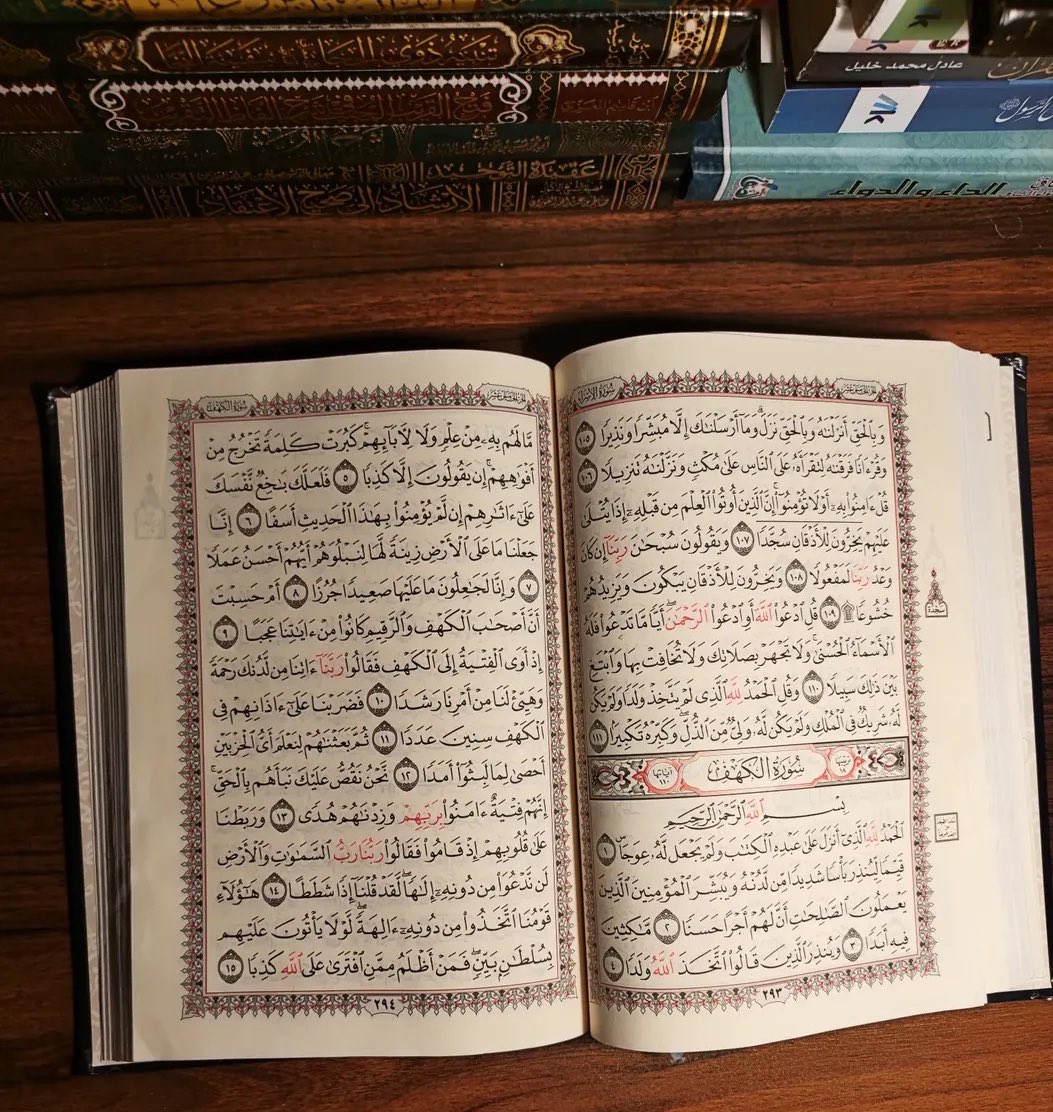 عادل محمد خليل
عقيدة التوحيد
الإرشاد إلى صحيح الاعتقاد
الداء والدواء
سُورَةُ الإِسْرَاءِ
وَبِالْحَقِّ أَنزَلْنَٰهُ وَبِالْحَقِّ نَزَلَ ۗ وَمَا أَرْسَلْنَٰكَ إِلَّا مُبَشِّرًا وَنَذِيرًا ١٠٥
وَقُرْءَانًا فَرَقْنَٰهُ لِتَقْرَأَهُۥ عَلَى النَّاسِ عَلَىٰ مُكْثٍ وَنَزَّلْنَٰهُ تَنزِيلًا ١٠٦
قُلْ ءَامِنُوا۟ بِهِۦٓ أَوْ لَا تُؤْمِنُوٓا۟ ۚ إِنَّ الَّذِينَ أُوتُوا۟ الْعِلْمَ مِن قَبْلِهِۦٓ إِذَا يُتْلَىٰ
عَلَيْهِمْ يَخِرُّونَ لِلْأَذْقَانِ سُجَّدًا ١٠٧ وَيَقُولُونَ سُبْحَٰنَ رَبِّنَآ إِن كَانَ
وَعْدُ رَبِّنَا لَمَفْعُولًا ١٠٨ وَيَخِرُّونَ لِلْأَذْقَانِ يَبْكُونَ وَيَزِيدُهُمْ
خُشُوعًا ۩ ١٠٩ قُلِ ادْعُوا۟ اللَّهَ أَوِ ادْعُوا۟ الرَّحْمَٰنَ ۖ أَيًّا مَّا تَدْعُوا۟ فَلَهُ
الْأَسْمَآءُ الْحُسْنَىٰ ۚ وَلَا تَجْهَرْ بِصَلَاتِكَ وَلَا تُخَافِتْ بِهَا وَابْتَغِ
بَيْنَ ذَٰلِكَ سَبِيلًا ١١٠ وَقُلِ الْحَمْدُ لِلَّهِ الَّذِى لَمْ يَتَّخِذْ وَلَدًا وَلَمْ يَكُن
لَّهُۥ شَرِيكٌ فِى الْمُلْكِ وَلَمْ يَكُن لَّهُۥ وَلِىٌّ مِّنَ الذُّلِّ ۖ وَكَبِّرْهُ تَكْبِيرًۢا ١١١
سَجْدَة
سُورَةُ الْكَهْفِ
بِسْمِ اللَّهِ الرَّحْمَٰنِ الرَّحِيمِ
الْحَمْدُ لِلَّهِ الَّذِىٓ أَنزَلَ عَلَىٰ عَبْدِهِ الْكِتَٰبَ وَلَمْ يَجْعَل لَّهُۥ عِوَجَا ۜ ١
قَيِّمًا لِّيُنذِرَ بَأْسًا شَدِيدًا مِّن لَّدُنْهُ وَيُبَشِّرَ الْمُؤْمِنِينَ الَّذِينَ
يَعْمَلُونَ الصَّٰلِحَٰتِ أَنَّ لَهُمْ أَجْرًا حَسَنًا ٢ مَّٰكِثِينَ
فِيهِ أَبَدًا ٣ وَيُنذِرَ الَّذِينَ قَالُوا۟ اتَّخَذَ اللَّهُ وَلَدًا ٤
٢٩٣
سُورَةُ الكَهْفِ
مَّا لَهُم بِهِۦ مِنْ عِلْمٍ وَلَا لِءَابَآئِهِمْ ۚ كَبُرَتْ كَلِمَةً تَخْرُجُ مِنْ
أَفْوَٰهِهِمْ ۚ إِن يَقُولُونَ إِلَّا كَذِبًا ٥ فَلَعَلَّكَ بَٰخِعٌ نَّفْسَكَ
عَلَىٰٓ ءَاثَٰرِهِمْ إِن لَّمْ يُؤْمِنُوا۟ بِهَٰذَا الْحَدِيثِ أَسَفًا ٦ إِنَّا
جَعَلْنَا مَا عَلَى الْأَرْضِ زِينَةً لَّهَا لِنَبْلُوَهُمْ أَيُّهُمْ أَحْسَنُ عَمَلًا
٧ وَإِنَّا لَجَٰعِلُونَ مَا عَلَيْهَا صَعِيدًا جُرُزًا ٨ أَمْ حَسِبْتَ
أَنَّ أَصْحَٰبَ الْكَهْفِ وَالرَّقِيمِ كَانُوا۟ مِنْ ءَايَٰتِنَا عَجَبًا ٩
إِذْ أَوَى الْفِتْيَةُ إِلَى الْكَهْفِ فَقَالُوا۟ رَبَّنَآ ءَاتِنَا مِن لَّدُنكَ رَحْمَةً
وَهَيِّئْ لَنَا مِنْ أَمْرِنَا رَشَدًا ١٠ فَضَرَبْنَا عَلَىٰٓ ءَاذَانِهِمْ فِى
الْكَهْفِ سِنِينَ عَدَدًا ١١ ثُمَّ بَعَثْنَٰهُمْ لِنَعْلَمَ أَىُّ الْحِزْبَيْنِ
أَحْصَىٰ لِمَا لَبِثُوٓا۟ أَمَدًا ١٢ نَّحْنُ نَقُصُّ عَلَيْكَ نَبَأَهُم بِالْحَقِّ ۚ
إِنَّهُمْ فِتْيَةٌ ءَامَنُوا۟ بِرَبِّهِمْ وَزِدْنَٰهُمْ هُدًى ١٣ وَرَبَطْنَا
عَلَىٰ قُلُوبِهِمْ إِذْ قَامُوا۟ فَقَالُوا۟ رَبُّنَا رَبُّ السَّمَٰوَٰتِ وَالْأَرْضِ
لَن نَّدْعُوَا۟ مِن دُونِهِۦٓ إِلَٰهًا ۖ لَّقَدْ قُلْنَآ إِذًا شَطَطًا ١٤ هَٰٓؤُلَآءِ
قَوْمُنَا اتَّخَذُوا۟ مِن دُونِهِۦٓ ءَالِهَةً ۖ لَّوْلَا يَأْتُونَ عَلَيْهِم
بِسُلْطَٰنٍۭ بَيِّنٍ ۖ فَمَنْ أَظْلَمُ مِمَّنِ افْتَرَىٰ عَلَى اللَّهِ كَذِبًا ١٥
٢٩٤